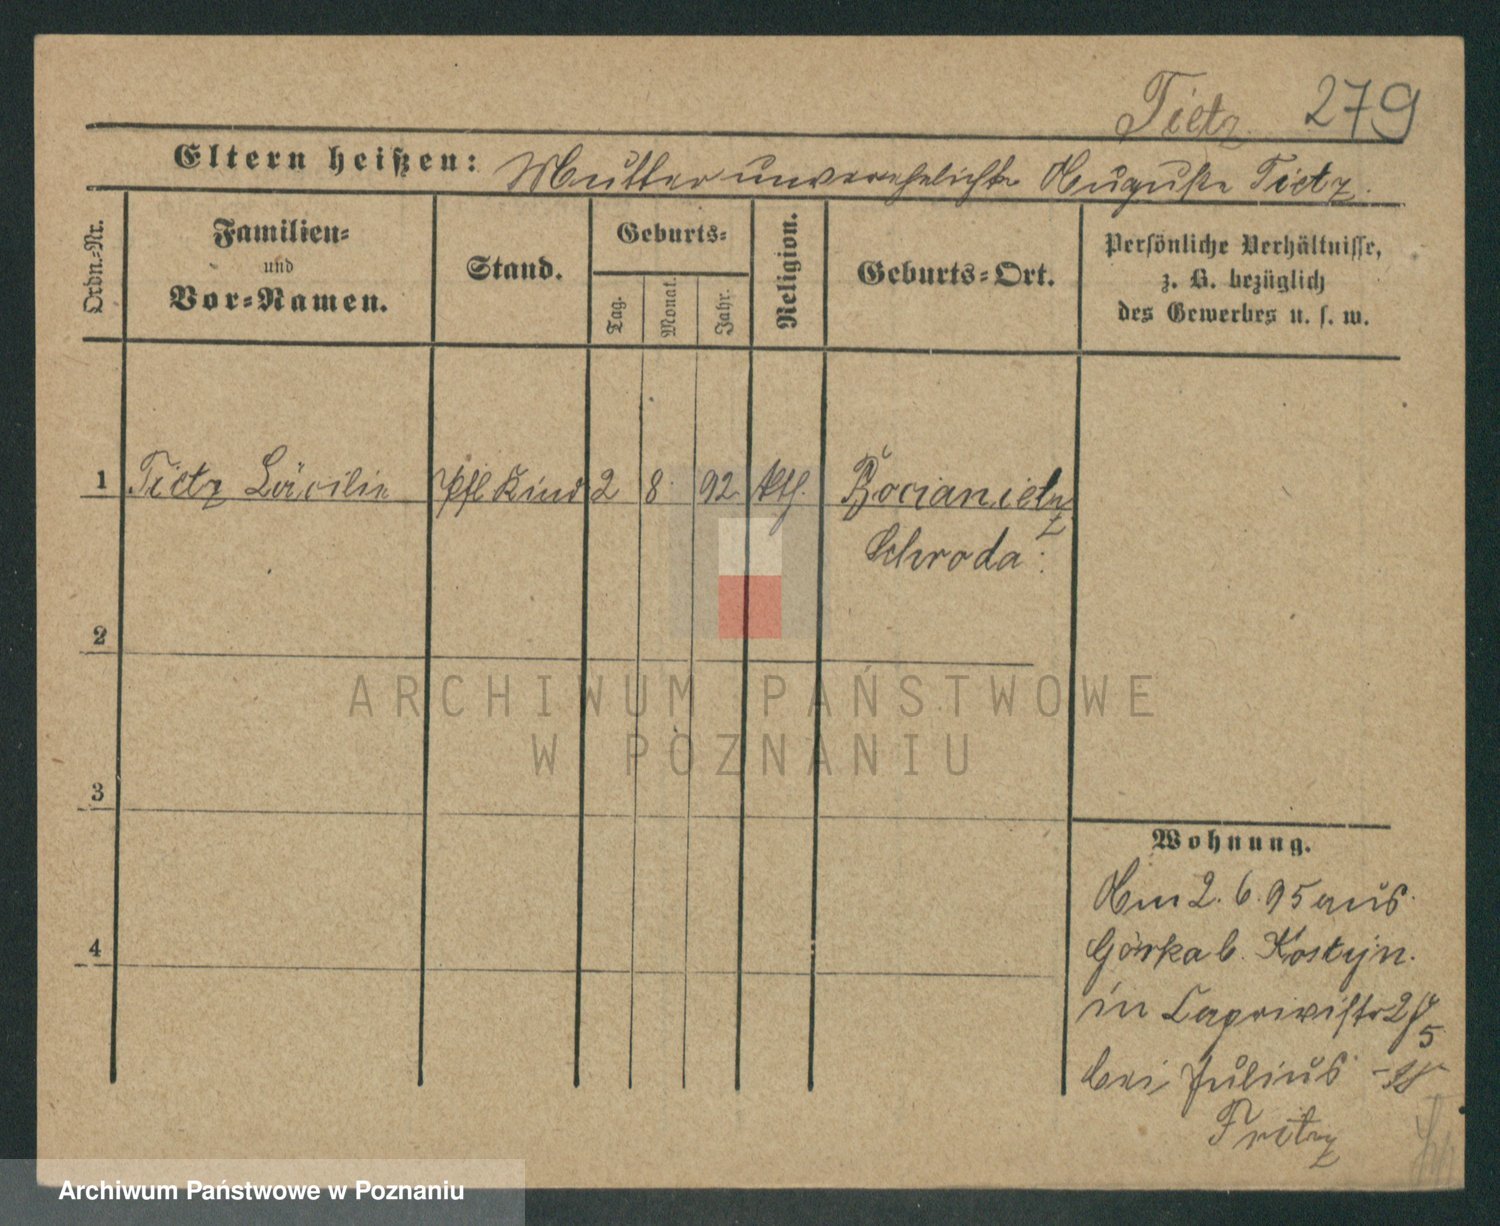 Tietz. 279
Eltern heißen: Mutter unverehelichte Auguste Tietz.
Ordn.-Nr.
Familien-
und
Vor-Namen.
Stand.
Geburts-
Tag.
Monat.
Jahr.
Religion.
Geburts-Ort.
Persönliche Verhältnisse,
z. B. bezüglich
des Gewerbes u. s. w.
1 Tietz Cäcilie Pfl Kind 2 8. 92. kth. Bocianietz
Schroda.
2
3
4
ARCHIWUM PAŃSTWOWE
W POZNANIU
Wohnung.
Am 2. 6. 95 aus
Górka b. Kostyn.
in Caprivistr
bei Julius
Fritz
Archiwum Państwowe w Poznaniu